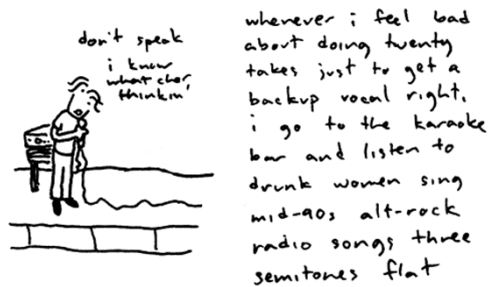 don't speak
i know
what cher
thinkin'
whenever i feel bad
about doing twenty
takes just to get a
backup vocal right,
i go to the karaoke
bar and listen to
drunk women sing
mid-90s alt-rock
radio songs three
semitones flat